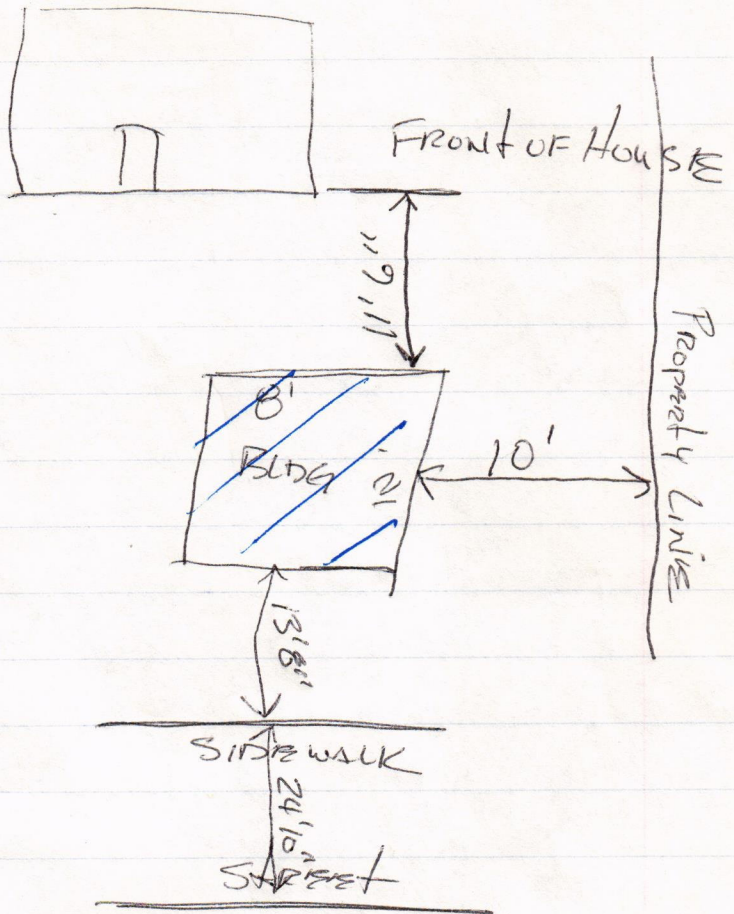 FRONT OF HOUSE
11'6"
PROPERTY LINE
8'
BLDG
12'
10'
13'8"
SIDEWALK
24'10"
STREET